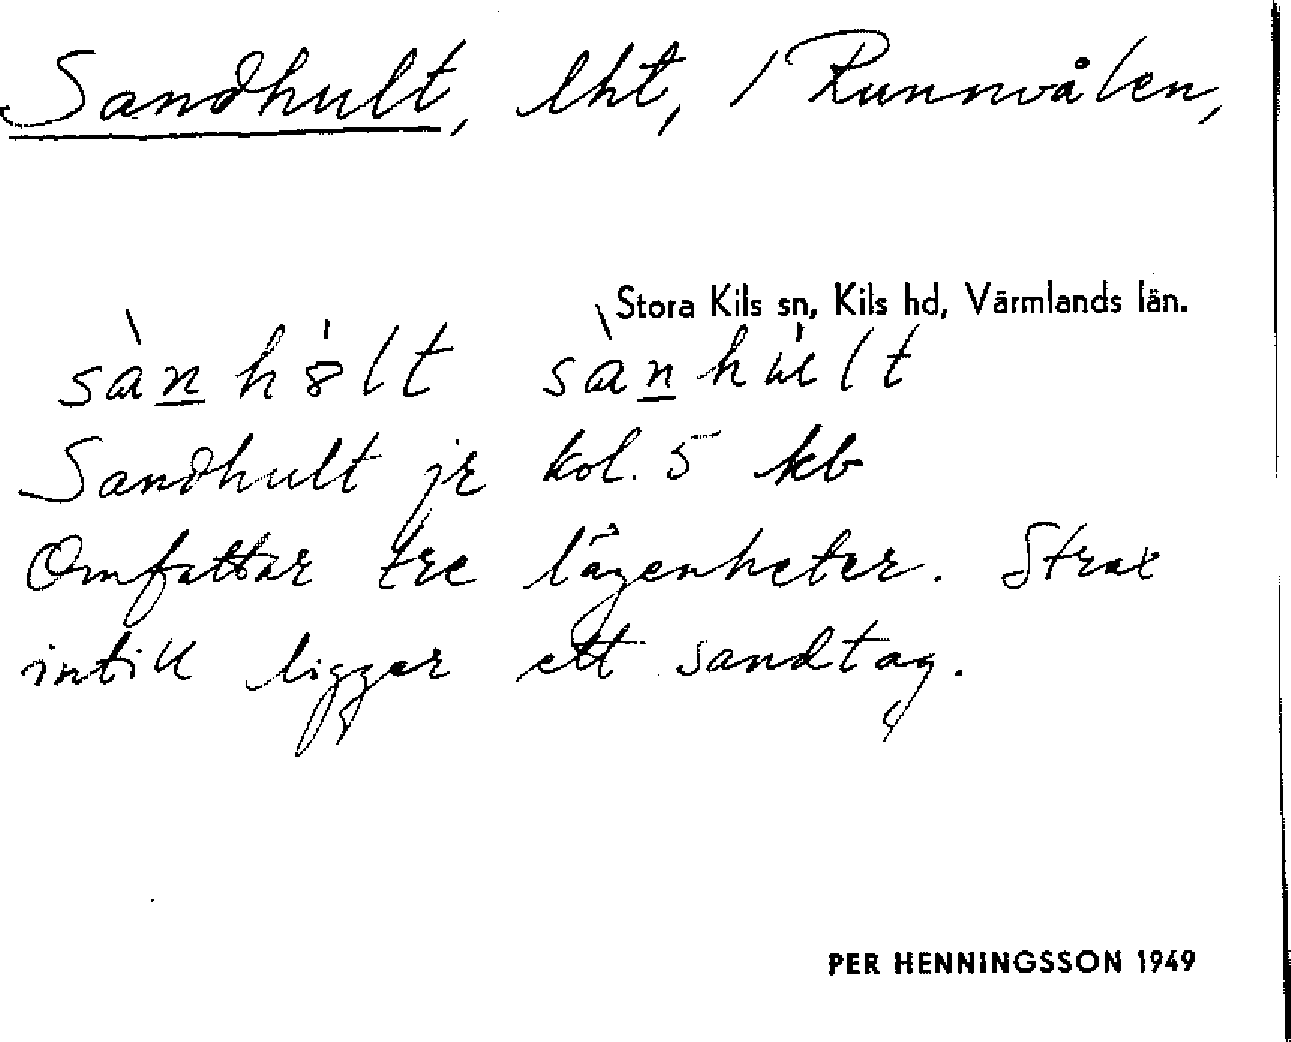 Sandhult, lht, / Runnvålen,
Stora Kils sn, Kils hd, Värmlands län.
sành8lt sànhult
Sandhult jr kol. 5 kb
Omfattar tre lägenheter. Strax
intill ligger ett sandtag.
PER HENNINGSSON 1949